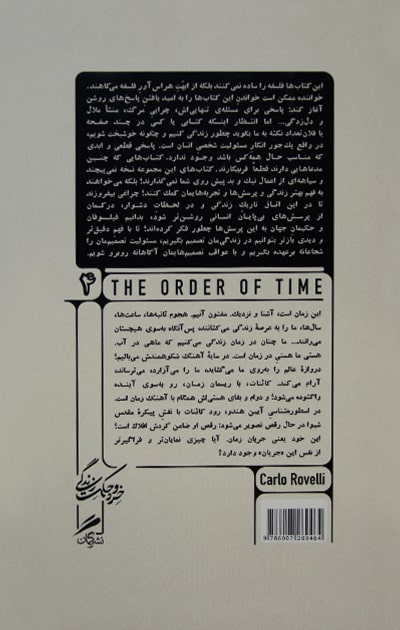 این کتاب‌ها فلسفه را ساده نمی‌کنند بلکه از ابهتِ هراس‌آورِ فلسفه می‌کاهند.
خواننده ممکن است خواندن این کتاب‌ها را به امید یافتن پاسخ‌های روشن
آغاز کند: پاسخی برای مسئله‌ی تنهایی‌اش، چراییِ مرگ، منشأ ملال
و دل‌زدگی... اما انتظار اینکه کتابی یا کسی در چند صفحه
یا فلان تعداد نکته به ما بگوید چطور زندگی کنیم و چگونه خوشبخت شویم،
در واقع یک‌جور انکار مسئولیت شخصیِ انسان است. پاسخی قطعی و ابدی
که مناسب حال همه‌کس باشد وجود ندارد. کتاب‌هایی که چنین
مدعاهایی دارند قطعاً فریبکارند. کتاب‌های این مجموعه نسخه نمی‌پیچند
و سیاهه‌ای از اعمال نیک و بد پیش روی شما نمی‌گذارند؛ بلکه می‌خواهند
به فهم بهتر زندگی و پرسش‌ها و تجربه‌هایمان کمک کنند؛ چراغی بیفروزند
تا در این اتاق تاریک زندگی و در لحظات دشوار، درکمان
از پرسش‌های بی‌پایان انسانی روشن‌تر شود، بدانیم فیلسوفان
و حکیمان جهان به این پرسش‌ها چطور فکر کرده‌اند؛ تا با فهمِ دقیق‌تر
و دیدی بازتر بتوانیم در زندگی‌مان تصمیم بگیریم، مسئولیت تصمیم‌مان را
شجاعانه برعهده بگیریم و با عواقب تصمیم‌هایمان آگاهانه روبرو شویم.
۴
THE ORDER OF TIME
این زمان است، آشنا و نزدیک. مفتون آنیم. هجوم ثانیه‌ها، ساعت‌ها،
سال‌ها، ما را به عرصهٔ زندگی می‌کشاند، پس‌آنگاه به‌سوی هیچستان
می‌راند... ما چنان در زمان زندگی می‌کنیم که ماهی در آب.
هستی ما هستی در زمان است. در سایهٔ آهنگ شکوهمندش می‌بالیم؛
دروازهٔ عالم را به‌روی ما می‌گشاید، ما را می‌آزارد، می‌ترساند،
آرام می‌کند. کائنات، با ریسمان زمان، رو به‌سوی آینده
واگشوده می‌شود؛ و دوام و بقای هستی‌اش همگام با آهنگ زمان است.
در اسطوره‌شناسی آیین هندو، رود کائنات با نقش پیکرهٔ مقدس
شیوا در حال رقص تصویر می‌شود: رقص او ضامن گردش افلاک است؛
این خود یعنی جریان زمان. آیا چیزی نمایان‌تر و فراگیرتر
از نفس این «جریان» وجود دارد؟
Carlo Rovelli
خرد و حکمت زندگی
نشر گمان
9786007289464